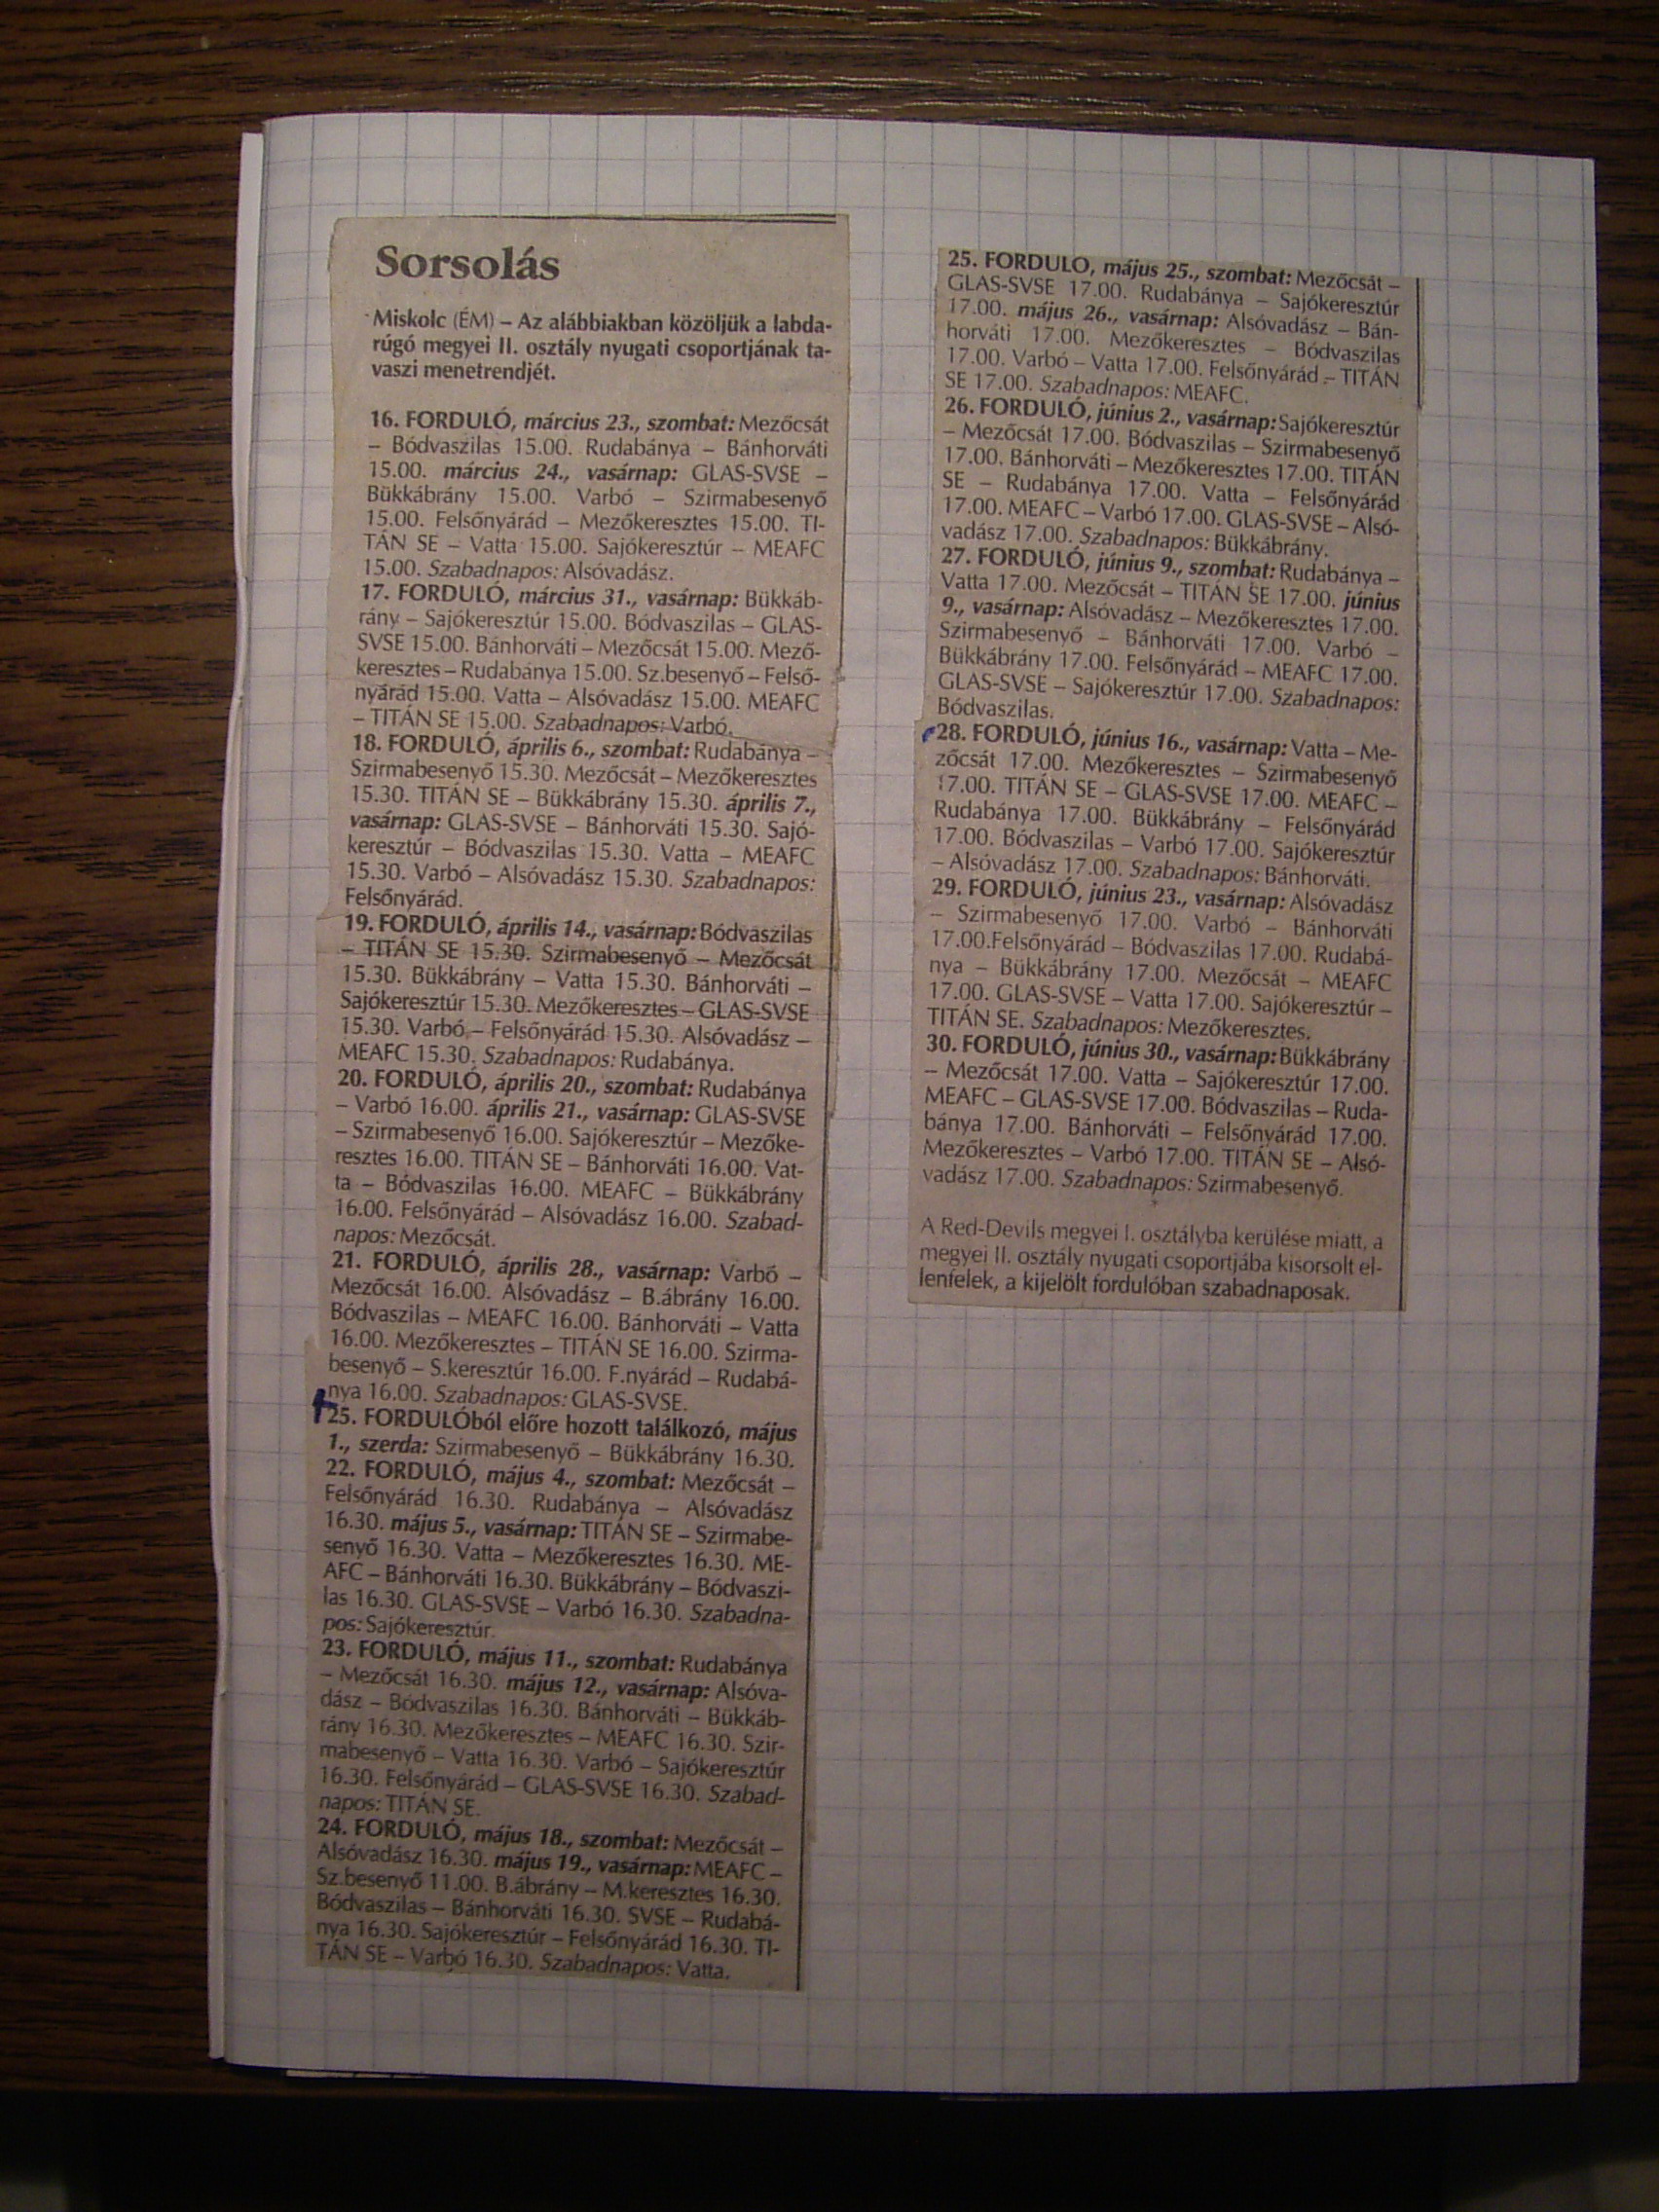 Sorsolás
Miskolc (ÉM) – Az alábbiakban közöljük a labda-
rúgó megyei II. osztály nyugati csoportjának ta-
vaszi menetrendjét.
16. FORDULÓ, március 23., szombat: Mezőcsát
– Bódvaszilas 15.00. Rudabánya – Bánhorváti
15.00. március 24., vasárnap: GLAS-SVSE –
Bükkábrány 15.00. Varbó – Szirmabesenyő
15.00. Felsőnyárád – Mezőkeresztes 15.00. TI-
TÁN SE – Vatta 15.00. Sajókeresztúr – MEAFC
15.00. Szabadnapos: Alsóvadász.
17. FORDULÓ, március 31., vasárnap: Bükkáb-
rány – Sajókeresztúr 15.00. Bódvaszilas – GLAS-
SVSE 15.00. Bánhorváti – Mezőcsát 15.00. Mező-
keresztes – Rudabánya 15.00. Sz.besenyő – Felső-
nyárád 15.00. Vatta – Alsóvadász 15.00. MEAFC
– TITÁN SE 15.00. Szabadnapos: Varbó.
18. FORDULÓ, április 6., szombat: Rudabánya –
Szirmabesenyő 15.30. Mezőcsát – Mezőkeresztes
15.30. TITÁN SE – Bükkábrány 15.30. április 7.,
vasárnap: GLAS-SVSE – Bánhorváti 15.30. Sajó-
keresztúr – Bódvaszilas 15.30. Vatta – MEAFC
15.30. Varbó – Alsóvadász 15.30. Szabadnapos:
Felsőnyárád.
19. FORDULÓ, április 14., vasárnap: Bódvaszilas
– TITÁN SE 15.30. Szirmabesenyő – Mezőcsát
15.30. Bükkábrány – Vatta 15.30. Bánhorváti –
Sajókeresztúr 15.30. Mezőkeresztes – GLAS-SVSE
15.30. Varbó – Felsőnyárád 15.30. Alsóvadász –
MEAFC 15.30. Szabadnapos: Rudabánya.
20. FORDULÓ, április 20., szombat: Rudabánya
– Varbó 16.00. április 21., vasárnap: GLAS-SVSE
– Szirmabesenyő 16.00. Sajókeresztúr – Mezőke-
resztes 16.00. TITÁN SE – Bánhorváti 16.00. Vat-
ta – Bódvaszilas 16.00. MEAFC – Bükkábrány
16.00. Felsőnyárád – Alsóvadász 16.00. Szabad-
napos: Mezőcsát.
21. FORDULÓ, április 28., vasárnap: Varbó –
Mezőcsát 16.00. Alsóvadász – B.ábrány 16.00.
Bódvaszilas – MEAFC 16.00. Bánhorváti – Vatta
16.00. Mezőkeresztes – TITÁN SE 16.00. Szirma-
besenyő – S.keresztúr 16.00. F.nyárád – Rudabá-
nya 16.00. Szabadnapos: GLAS-SVSE.
25. FORDULÓból előre hozott találkozó, május
1., szerda: Szirmabesenyő – Bükkábrány 16.30.
22. FORDULÓ, május 4., szombat: Mezőcsát –
Felsőnyárád 16.30. Rudabánya – Alsóvadász
16.30. május 5., vasárnap: TITÁN SE – Szirmabe-
senyő 16.30. Vatta – Mezőkeresztes 16.30. ME-
AFC – Bánhorváti 16.30. Bükkábrány – Bódvaszi-
las 16.30. GLAS-SVSE – Varbó 16.30. Szabadna-
pos: Sajókeresztúr.
23. FORDULÓ, május 11., szombat: Rudabánya
– Mezőcsát 16.30. május 12., vasárnap: Alsóva-
dász – Bódvaszilas 16.30. Bánhorváti – Bükkáb-
rány 16.30. Mezőkeresztes – MEAFC 16.30. Szir-
mabesenyő – Vatta 16.30. Varbó – Sajókeresztúr
16.30. Felsőnyárád – GLAS-SVSE 16.30. Szabad-
napos: TITÁN SE.
24. FORDULÓ, május 18., szombat: Mezőcsát –
Alsóvadász 16.30. május 19., vasárnap: MEAFC –
Sz.besenyő 11.00. B.ábrány – M.keresztes 16.30.
Bódvaszilas – Bánhorváti 16.30. SVSE – Rudabá-
nya 16.30. Sajókeresztúr – Felsőnyárád 16.30. TI-
TÁN SE – Varbó 16.30. Szabadnapos: Vatta.
25. FORDULÓ, május 25., szombat: Mezőcsát –
GLAS-SVSE 17.00. Rudabánya – Sajókeresztúr
17.00. május 26., vasárnap: Alsóvadász – Bán-
horváti 17.00. Mezőkeresztes – Bódvaszilas
17.00. Varbó – Vatta 17.00. Felsőnyárád – TITÁN
SE 17.00. Szabadnapos: MEAFC.
26. FORDULÓ, június 2., vasárnap: Sajókeresztúr
– Mezőcsát 17.00. Bódvaszilas – Szirmabesenyő
17.00. Bánhorváti – Mezőkeresztes 17.00. TITÁN
SE – Rudabánya 17.00. Vatta – Felsőnyárád
17.00. MEAFC – Varbó 17.00. GLAS-SVSE – Alsó-
vadász 17.00. Szabadnapos: Bükkábrány.
27. FORDULÓ, június 9., szombat: Rudabánya –
Vatta 17.00. Mezőcsát – TITÁN SE 17.00. június
9., vasárnap: Alsóvadász – Mezőkeresztes 17.00.
Szirmabesenyő – Bánhorváti 17.00. Varbó –
Bükkábrány 17.00. Felsőnyárád – MEAFC 17.00.
GLAS-SVSE – Sajókeresztúr 17.00. Szabadnapos:
Bódvaszilas.
28. FORDULÓ, június 16., vasárnap: Vatta – Me-
zőcsát 17.00. Mezőkeresztes – Szirmabesenyő
17.00. TITÁN SE – GLAS-SVSE 17.00. MEAFC –
Rudabánya 17.00. Bükkábrány – Felsőnyárád
17.00. Bódvaszilas – Varbó 17.00. Sajókeresztúr
– Alsóvadász 17.00. Szabadnapos: Bánhorváti.
29. FORDULÓ, június 23., vasárnap: Alsóvadász
– Szirmabesenyő 17.00. Varbó – Bánhorváti
17.00.Felsőnyárád – Bódvaszilas 17.00. Rudabá-
nya – Bükkábrány 17.00. Mezőcsát – MEAFC
17.00. GLAS-SVSE – Vatta 17.00. Sajókeresztúr –
TITÁN SE. Szabadnapos: Mezőkeresztes.
30. FORDULÓ, június 30., vasárnap: Bükkábrány
– Mezőcsát 17.00. Vatta – Sajókeresztúr 17.00.
MEAFC – GLAS-SVSE 17.00. Bódvaszilas – Ruda-
bánya 17.00. Bánhorváti – Felsőnyárád 17.00.
Mezőkeresztes – Varbó 17.00. TITÁN SE – Alsó-
vadász 17.00. Szabadnapos: Szirmabesenyő.
A Red-Devils megyei I. osztályba kerülése miatt, a
megyei II. osztály nyugati csoportjába kisorsolt el-
lenfelek, a kijelölt fordulóban szabadnaposak.